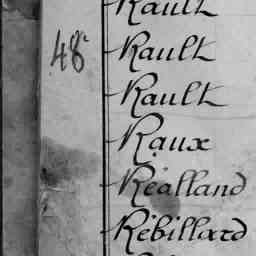 Rault
48
Rault
Rault
Raux
Réalland
Rébillard